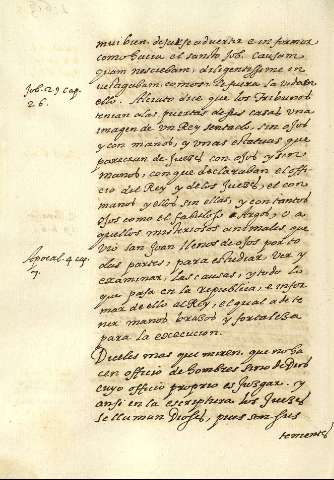 mui bien dejarse aduertir e informar
como hacia el santo Job. causam
quam nesciebam, diligentissime in
Job. 29 cap.
26.
vestigabam, como
ello. Alciato dice que los Tribunos
tenian a las puertas de sus casas una
imagen de un Rey sentado, sin ojos
y con manos, y unas estatuas que
parecian de Jueces con ojos y sin
manos, con que declaraban el offi
cio del Rey y de los Jueces, el con
manos y ellos sin ellas, y con tantos
ojos como el fabuloso Argos, o a
quellos misteriosos animales que
Apocal. 4 cap.
7.
vio san Juan llenos de ojos por to
das partes, para estudiar, ver y
examinar las causas, y todo lo
que pasa en la republica, e infor
mar de ello al Rey, el qual a de te
ner manos, brazos y fortaleza
para la execucion.
Diceles mas que miren que no ha
cen officio de hombres sino de Dios
cuyo officio proprio es Juzgar. y
ansi en la escriptura los Jueces
se llaman Dioses, pues son sus
tenientes